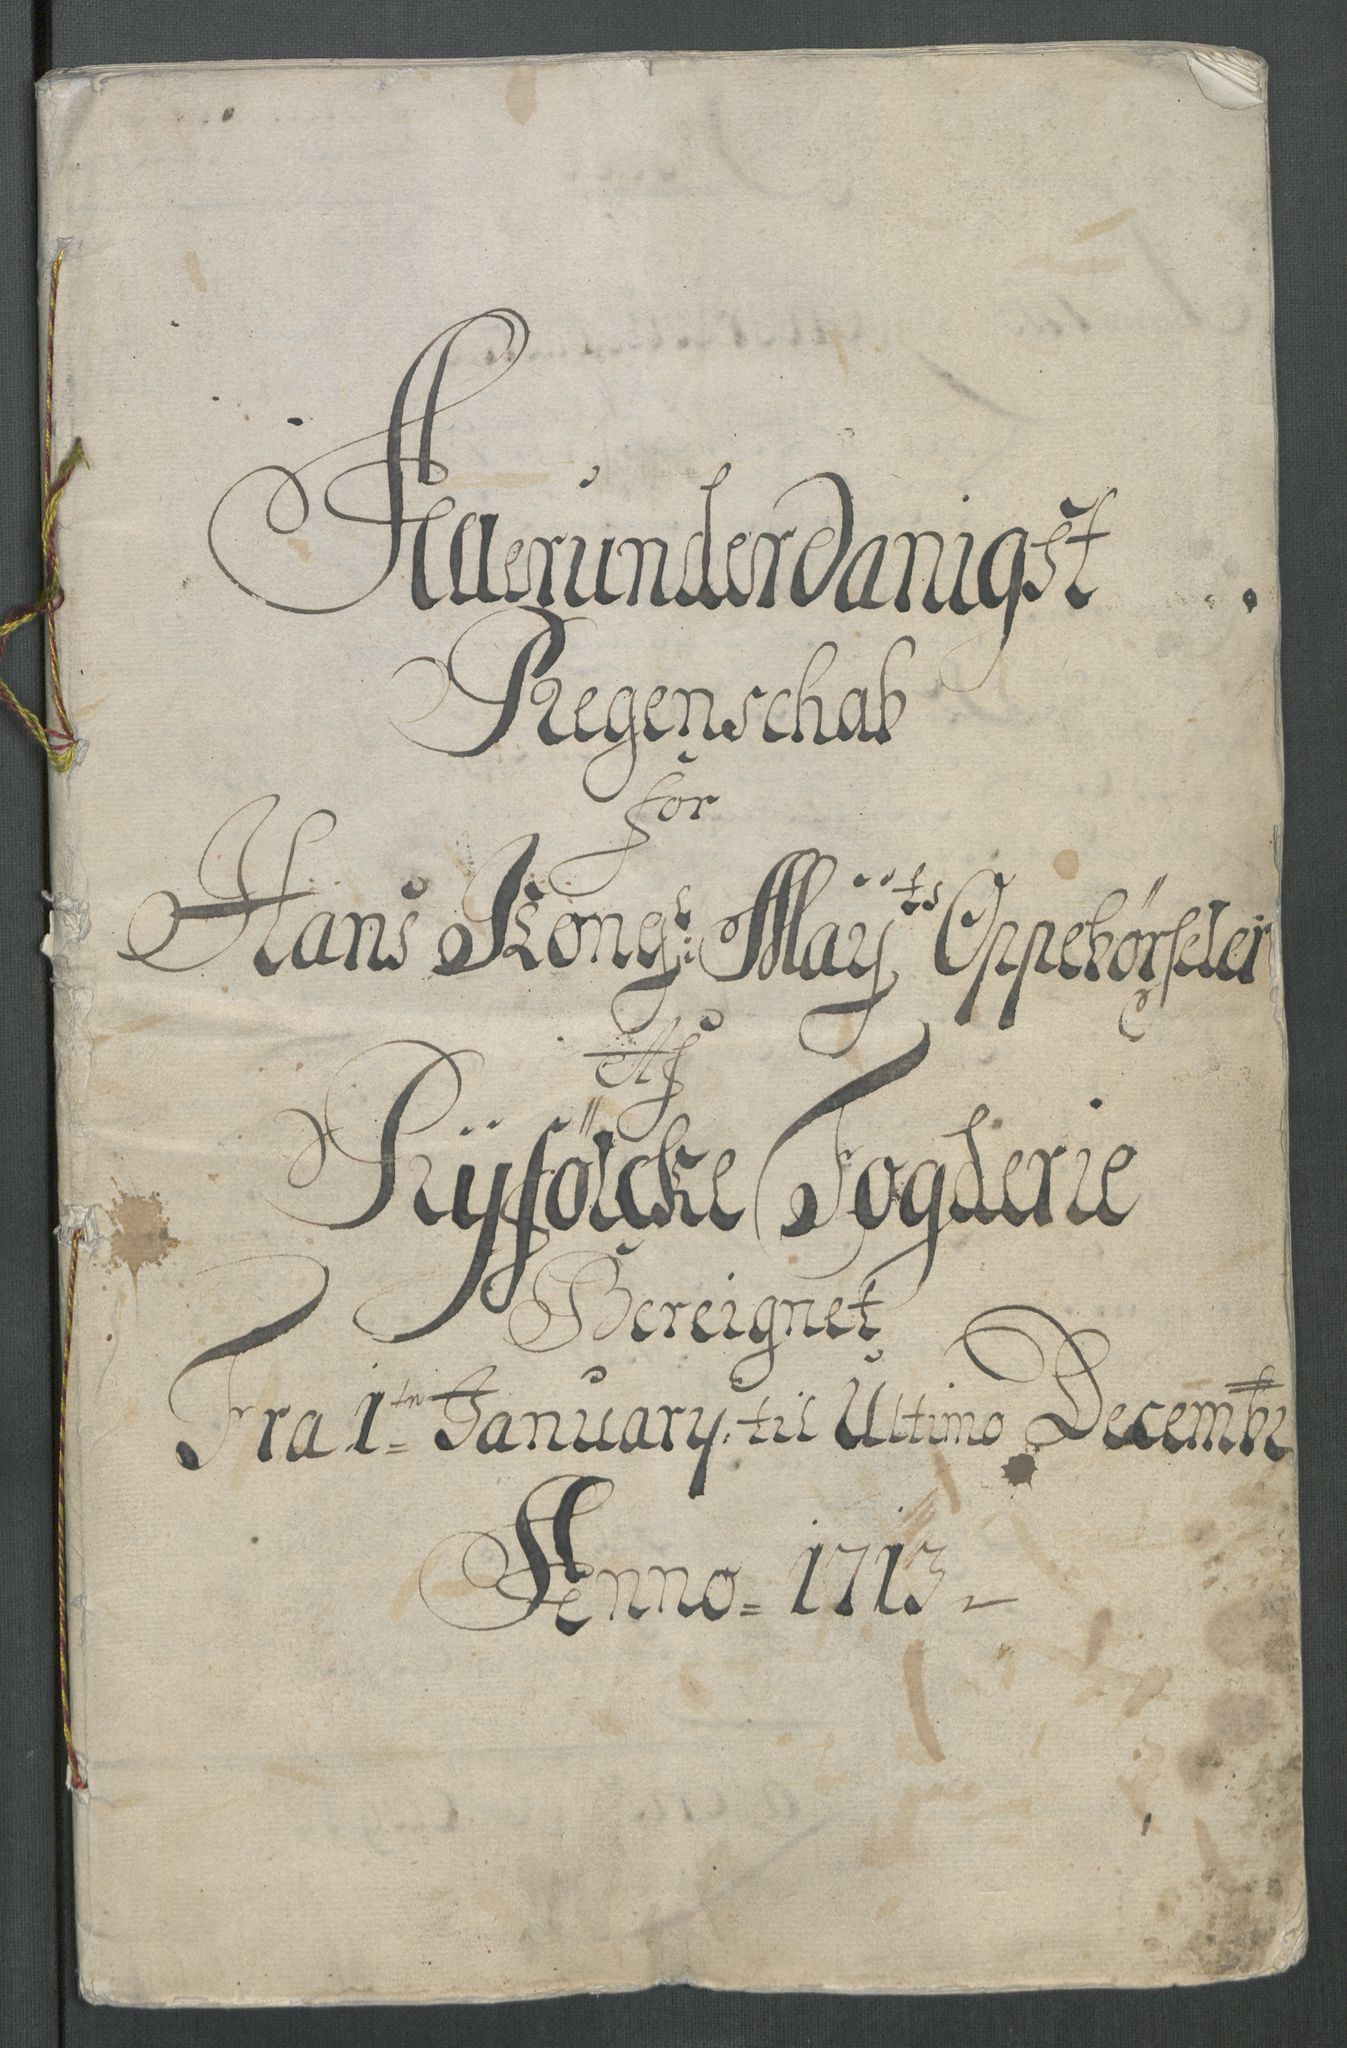 Allerunderdanigst
Regenschab
for
Hans Kongl: Maÿts Oppebörseler
Af
Rÿfölcke Fogderie
Bereignet
Fra 1tn January: til Ultimo Decembr
Anno = 1713